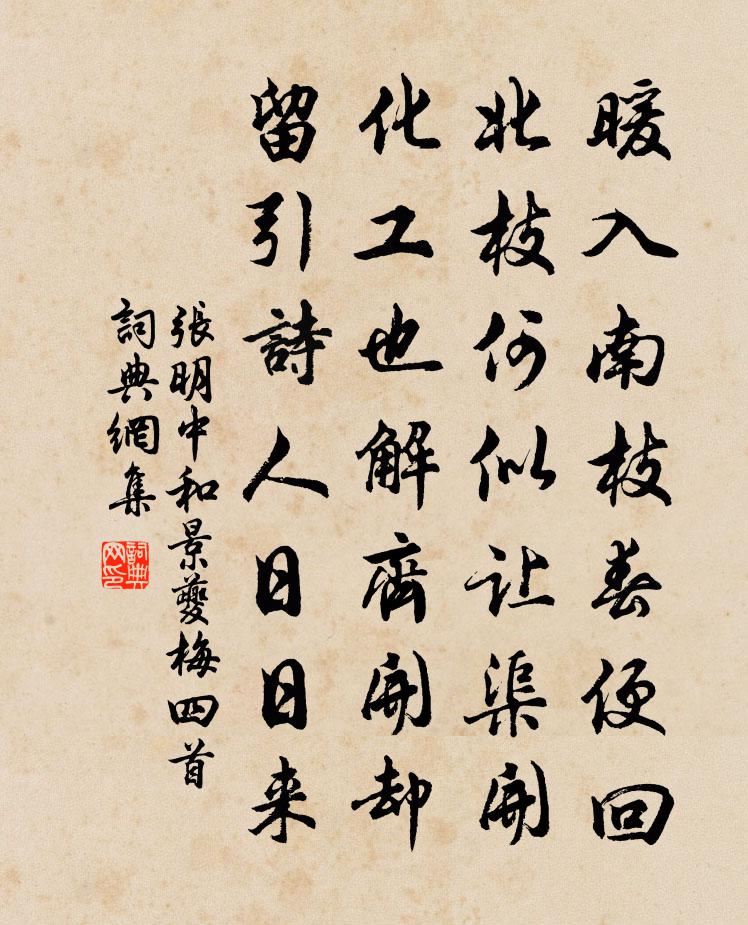 暖入南枝春便回
北枝何似让渠開
化工也解齊開却
留引詩人日日来
張明中和景夔梅四首
詞典網集
詞典网印